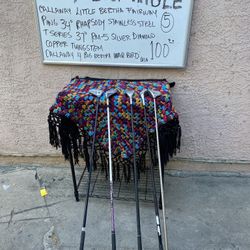 CALLAWAY LITTLE BERTHA FAIRWAY 5
PING 34" RHAPSODY STAINLESS STEEL
T SERIES 37" PM-5 SILVER DIAMOND
COPPER TUNGSTEM
CALLAWAY 4 BIG BERTHA WAR BIRD
100